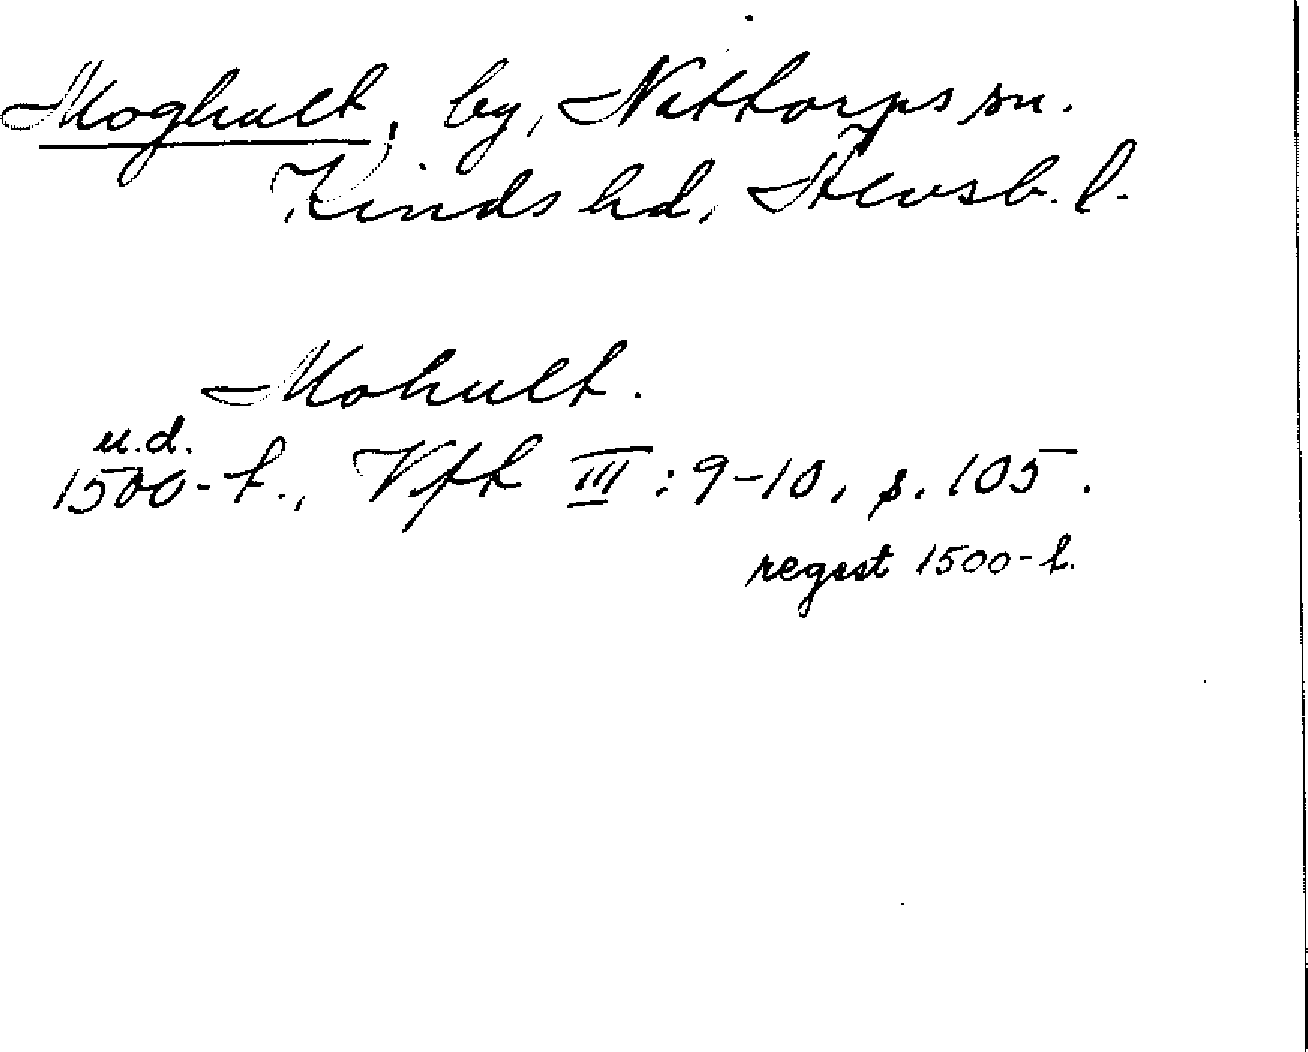 Moghult, by, Nittorps sn.
Kinds hd, Älvsb. l.
Mohult.
u.d.
1500-t., Vfl III : 9-10, s. 105.
regest 1500-t.